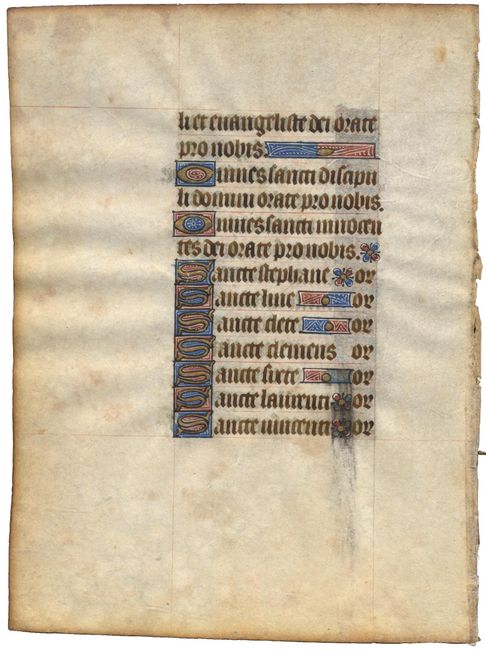 li et euangeliste dei orate
pro nobis.
Omnes sancti discipu
li domini orate pro nobis.
Omnes sancti innocen
tes dei orate pro nobis.
Sancte stephane or
Sancte line or
Sancte clete or
Sancte clemens or
Sancte sixte or
Sancte laurenti or
Sancte vincenti or